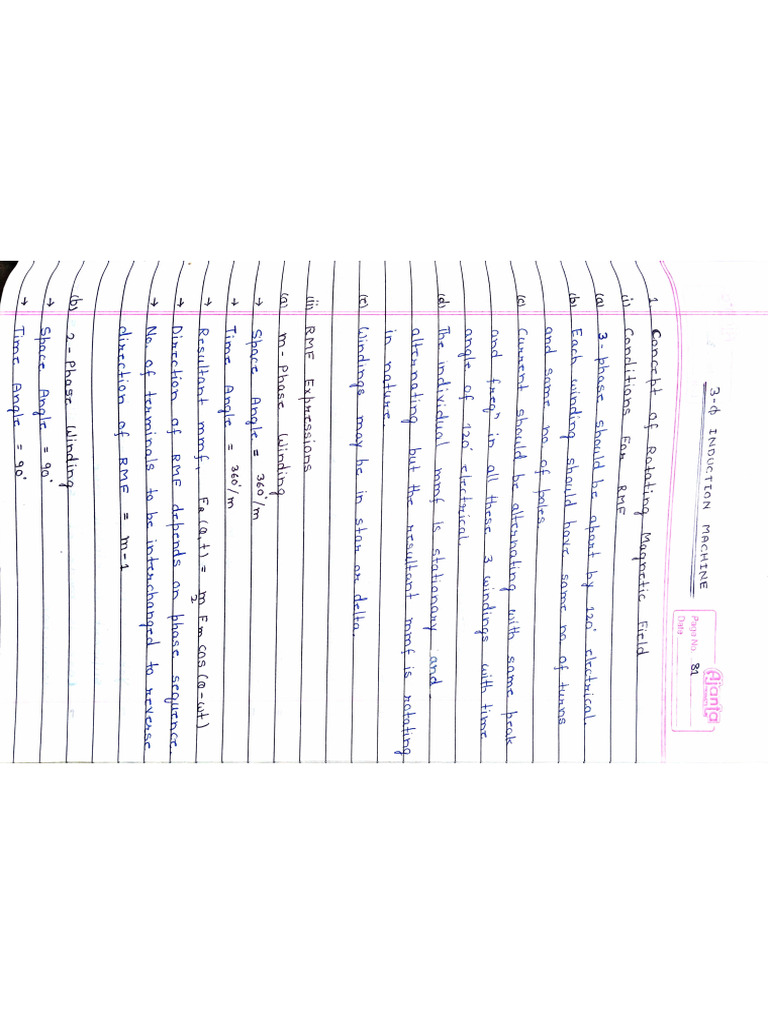 Ajanta
Page No. 81
Date
3-ϕ INDUCTION MACHINE
1. Concept of Rotating Magnetic Field
(i) Conditions For RMF
(a) 3-phase should be apart by 120° electrical.
(b) Each winding should have same no. of turns
and same no. of poles.
(c) Current should be alternating with same peak
and freqⁿ in all these 3 windings with time
angle of 120° electrical.
(d) The individual mmf is stationary and -
alternating but the resultant mmf is rotating
in nature.
(e) Windings may be in star or delta.
(ii) RMF Expressions
(a) m-Phase Winding
→ Space Angle = 360°/m
→ Time Angle = 360°/m
→ Resultant mmf, F_R (θ,t) = m/2 Fm cos(θ-ωt)
→ Direction of RMF depends on phase sequence.
→ No. of terminals to be interchanged to reverse
direction of RMF = m-1
(b) 2-Phase Winding
→ Space Angle = 90°
→ Time Angle = 90°